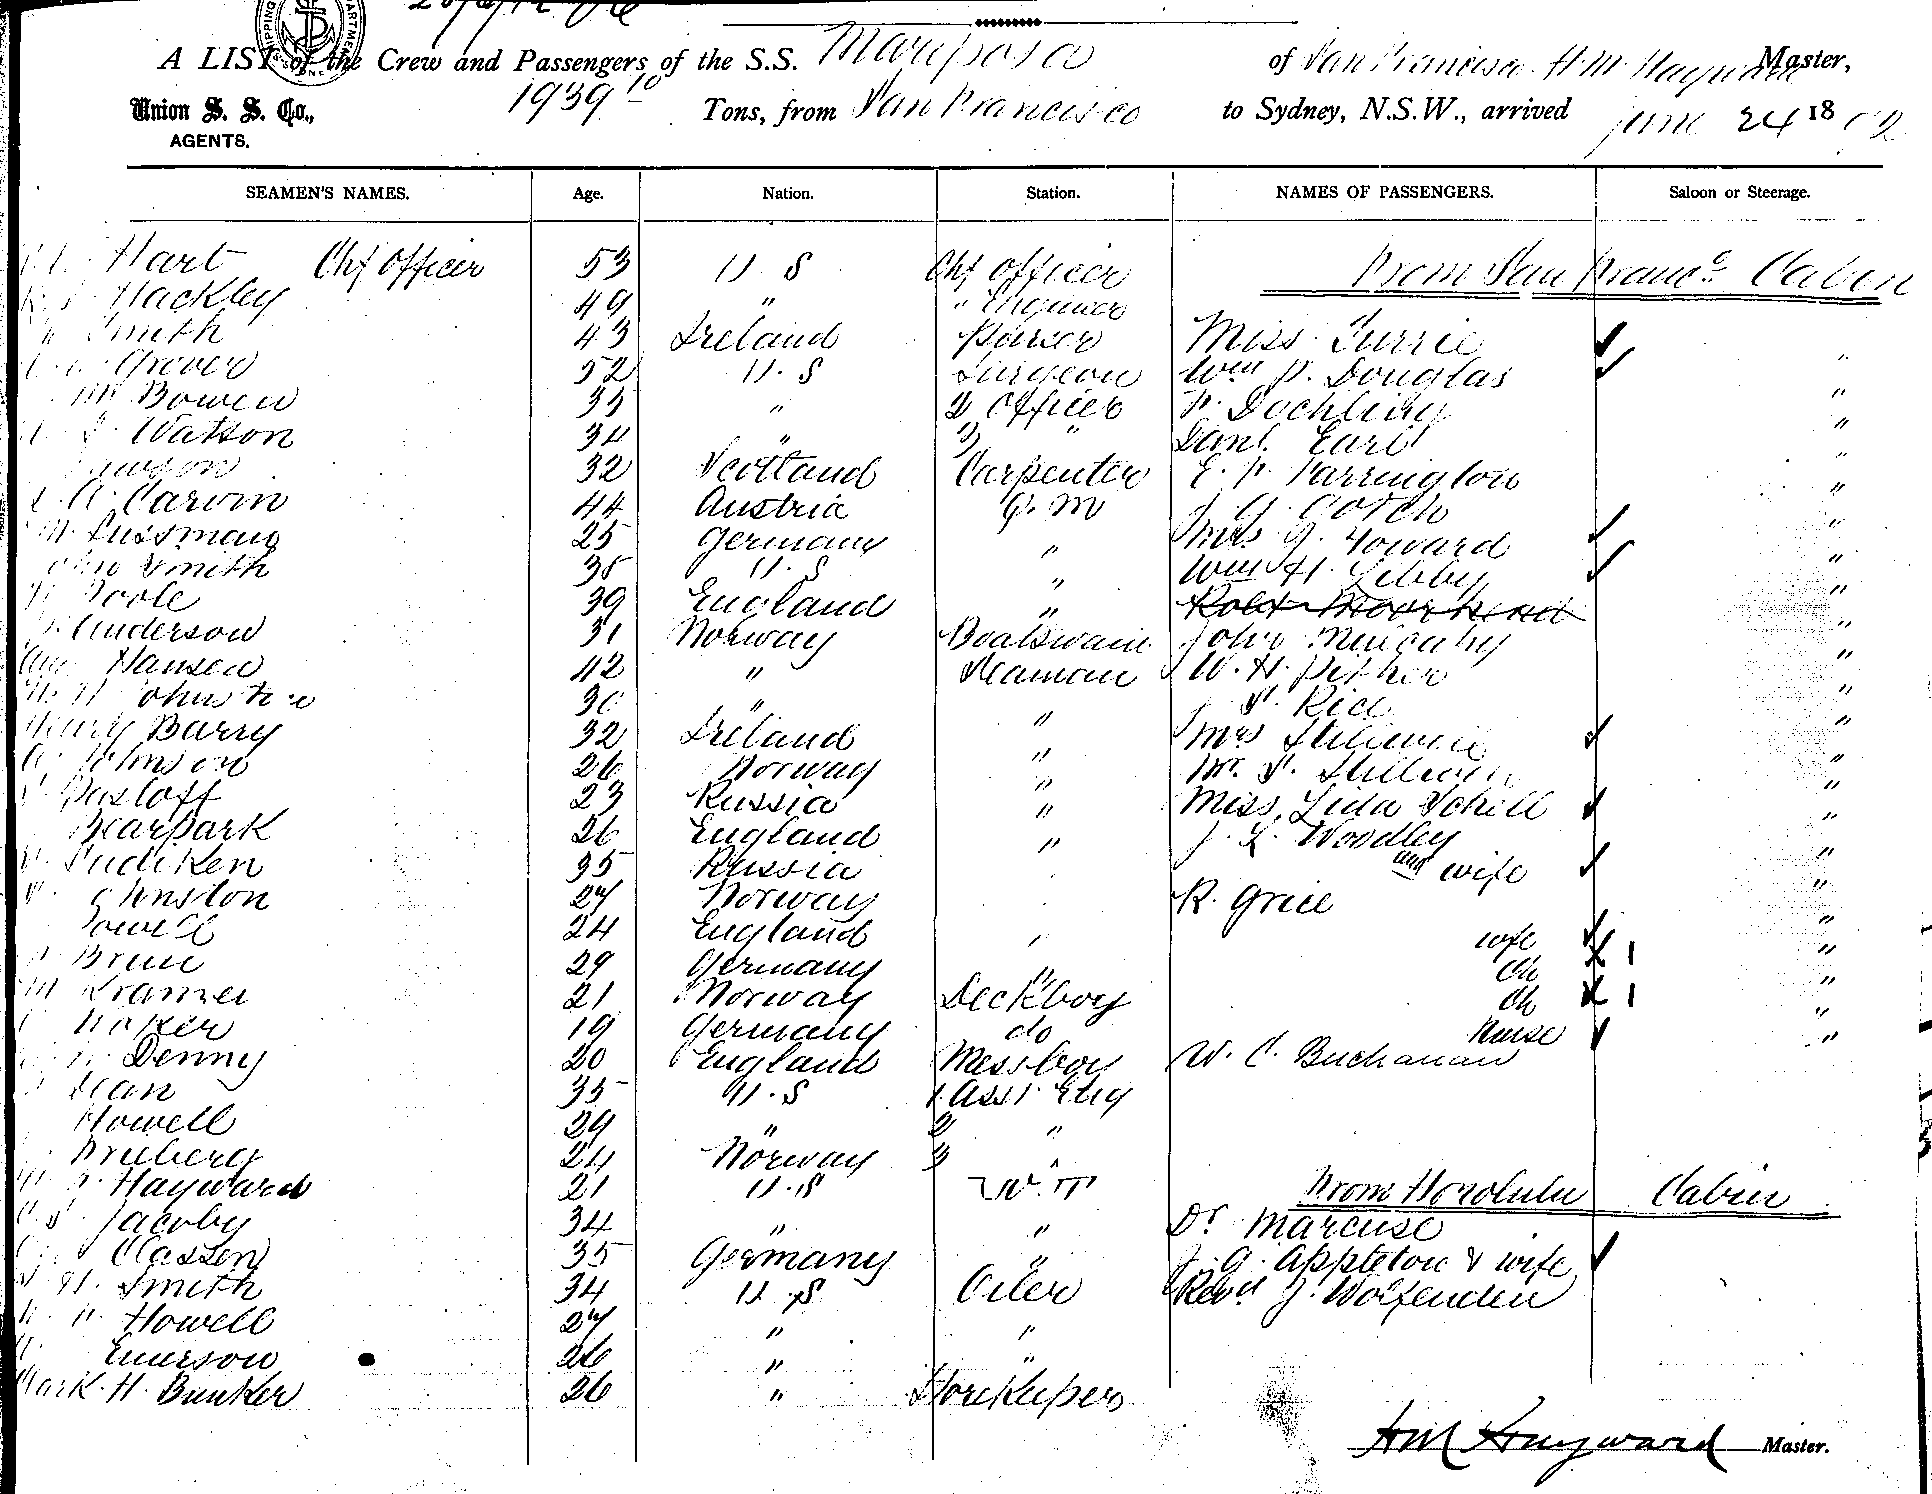 A LIST of the Crew and Passengers of the S.S. Mariposa of San Francisco H. M. Hayward Master,
Union S. S. Co., 1939 10 Tons, from San Francisco to Sydney, N.S.W., arrived June 24 18 92
AGENTS.
SEAMEN'S NAMES. Age. Nation. Station. NAMES OF PASSENGERS. Saloon or Steerage.
Hart Chf Officer 53 U.S Chf Officer From San Franco Cabin
Hackley 49 " " Engineer
Smith 43 Ireland Purser Miss Furrie
Grover 52 U.S Surgeon Wm P. Douglas "
Bowen 33 " 2 Officer "
Watson 34 " 3 " Danl. Earl "
32 Scotland Carpenter E. F. Farrington "
Carvin 44 Austria Q. M J G Gotch "
Sussman 25 Germany " Mrs G. Howard "
Smith 35 U.S " Wm H. Libby "
Poole 39 England " "
Anderson 31 Norway Boatswain John "
Hansen 42 " Seaman W. H. Pither "
30 " S. Rice "
Henry Barry 32 Ireland " Mrs "
Johnson 26 Norway " Mr. S. "
Pasloff 23 Russia " Miss Lida Schell "
Bearpark 26 England " J. L. Woodley "
35 Russia and wife "
Johnston 27 Norway R. Grice "
Powell 24 England " wife "
Brun 29 Germany " Ch 1 "
Kramer 21 Norway Deckboy Ch 1 "
19 Germany do Nurse "
Denny 20 England Messboy W. C. Buchanan "
35 U.S 1 Asst Eng
Howell 29 " 2 "
Frieberg 24 Norway 3 "
Hayward 21 U.S W.T From Honolulu Cabin
Jacoby 34 " " Dr Marcuse
Classen 35 Germany " J. G. Appleton & wife
Smith 34 U.S Oiler Revd J. Wolfenden
Howell 27 " "
Emerson 26 " "
Mark H. Bunker 26 " Storekeeper
H M Hayward Master.